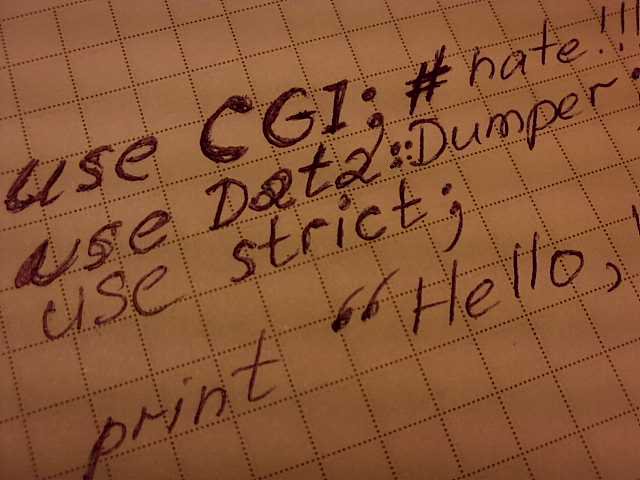 use CGI; # hate!!!
use Data::Dumper;
use strict;
print “Hello,